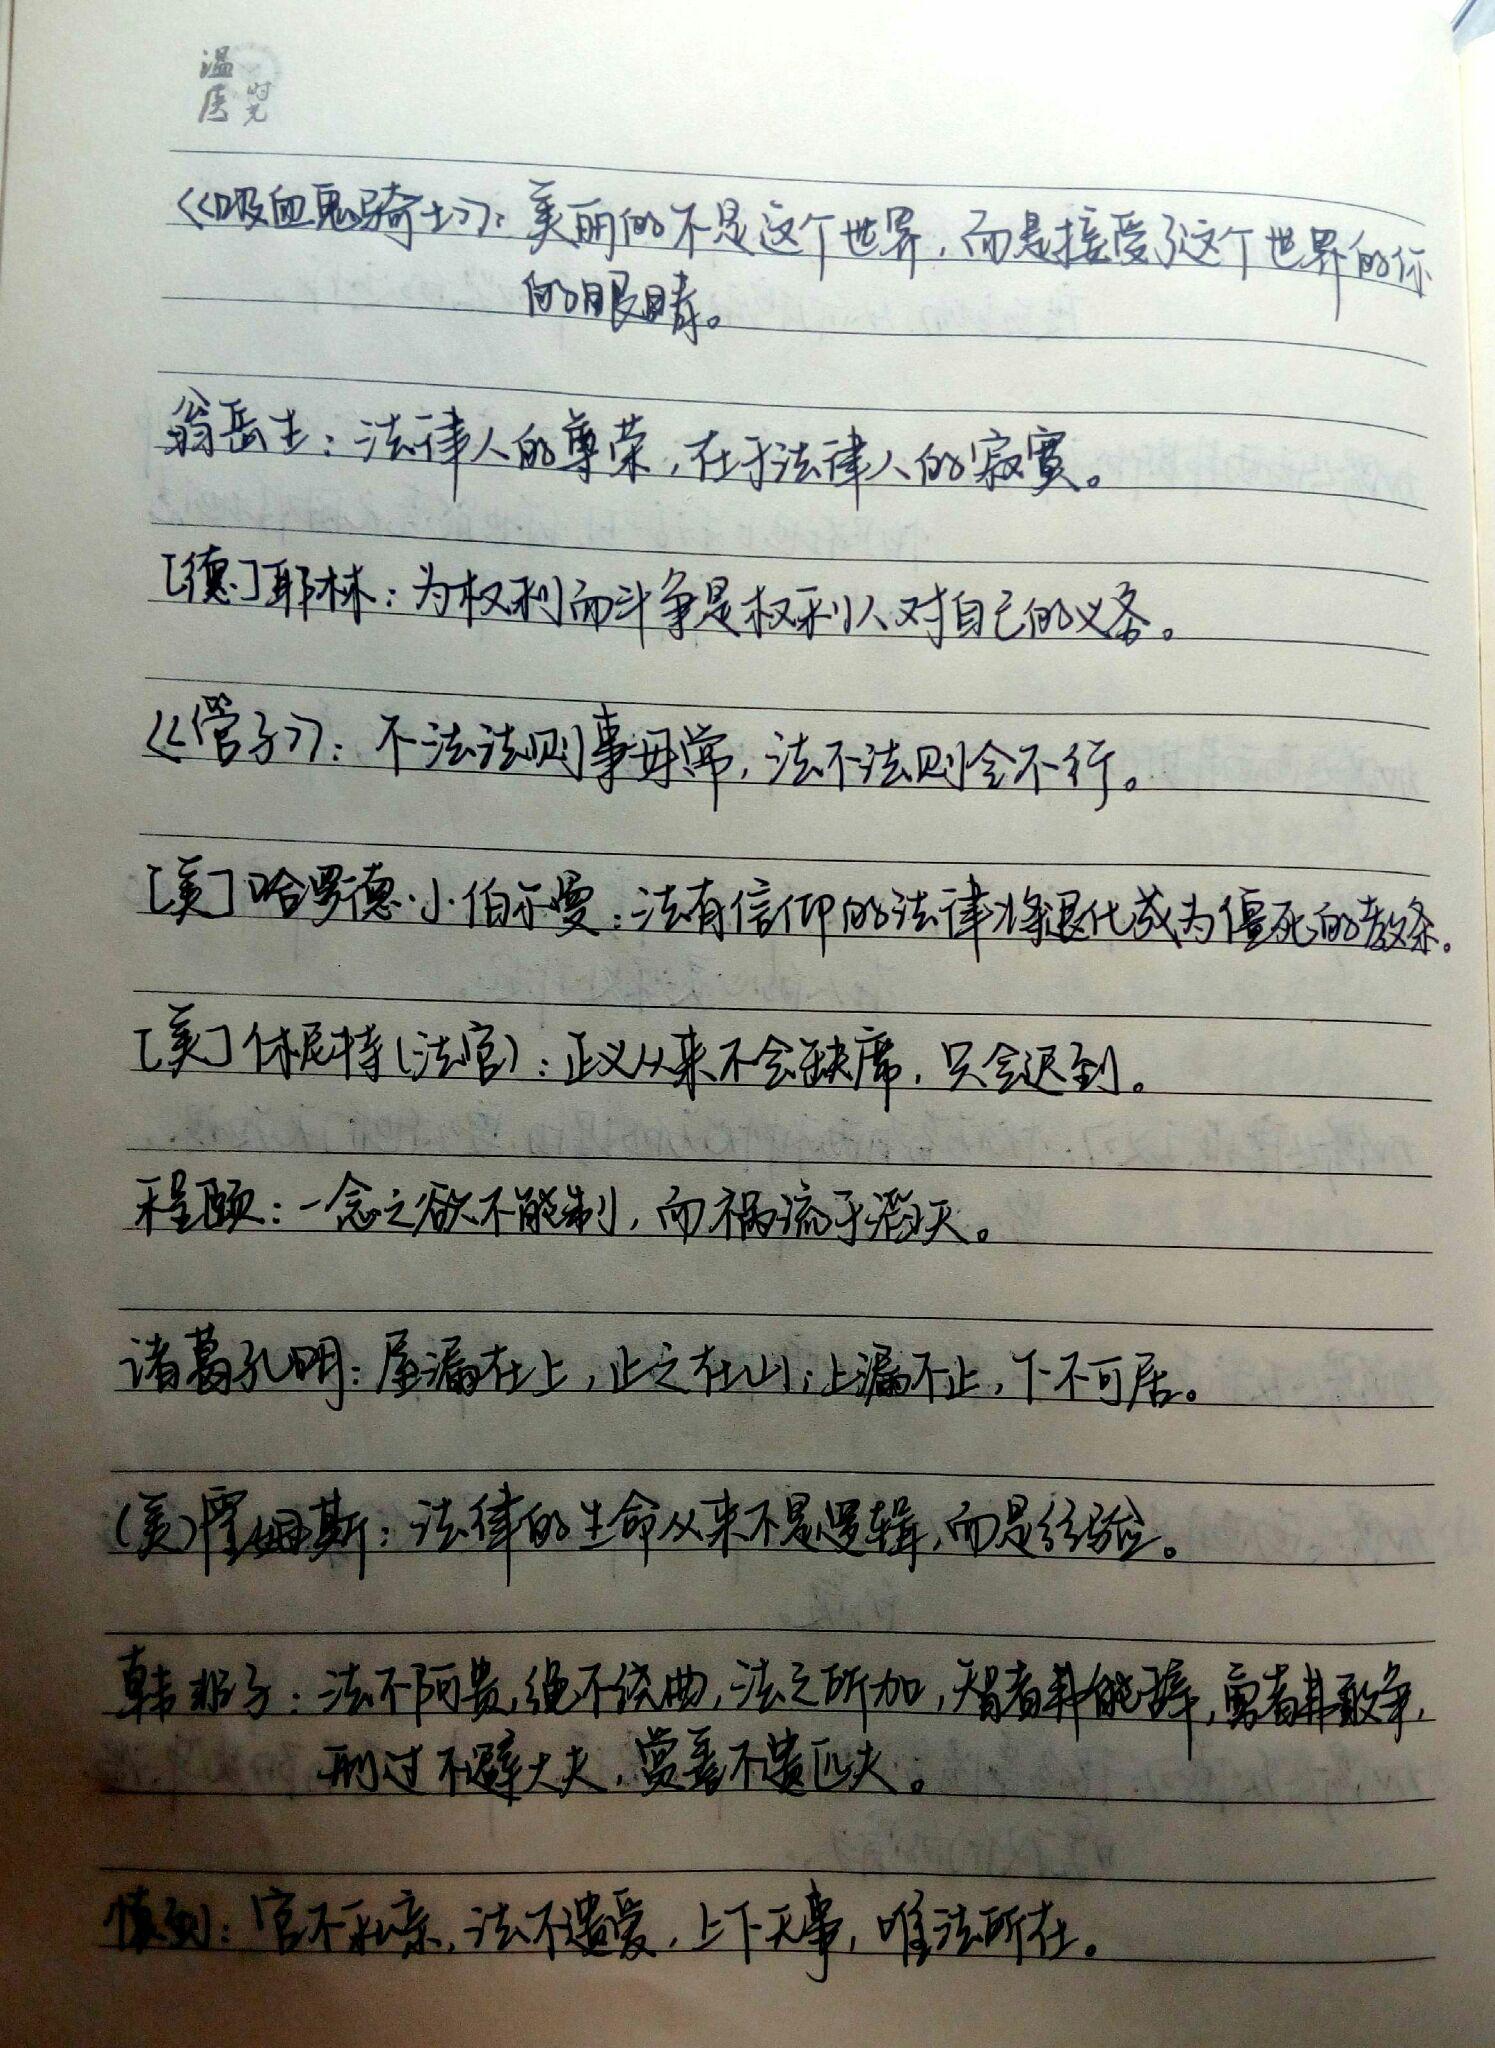 温医
时光
《吸血鬼骑士》：美丽的不是这个世界，而是接受了这个世界的你
的眼睛。
翁岳生：法律人的尊荣，在于法律人的寂寞。
[德]耶林：为权利而斗争是权利人对自己的义务。
《管子》：不法法则事毋常，法不法则令不行。
[美]哈罗德·J·伯尔曼：没有信仰的法律将退化成为僵死的教条。
[美]休尼特(法官)：正义从来不会缺席，只会迟到。
程颐：一念之欲不能制，而祸流于滔天。
诸葛孔明：屋漏在上，止之在山；上漏不止，下不可居。
(美)霍姆斯：法律的生命从来不是逻辑，而是经验。
韩非子：法不阿贵，绳不绕曲，法之所加，智者弗能辞，勇者弗敢争，
刑过不避大夫，赏善不遗匹夫。
慎到：官不私亲，法不遗爱，上下无事，唯法所在。